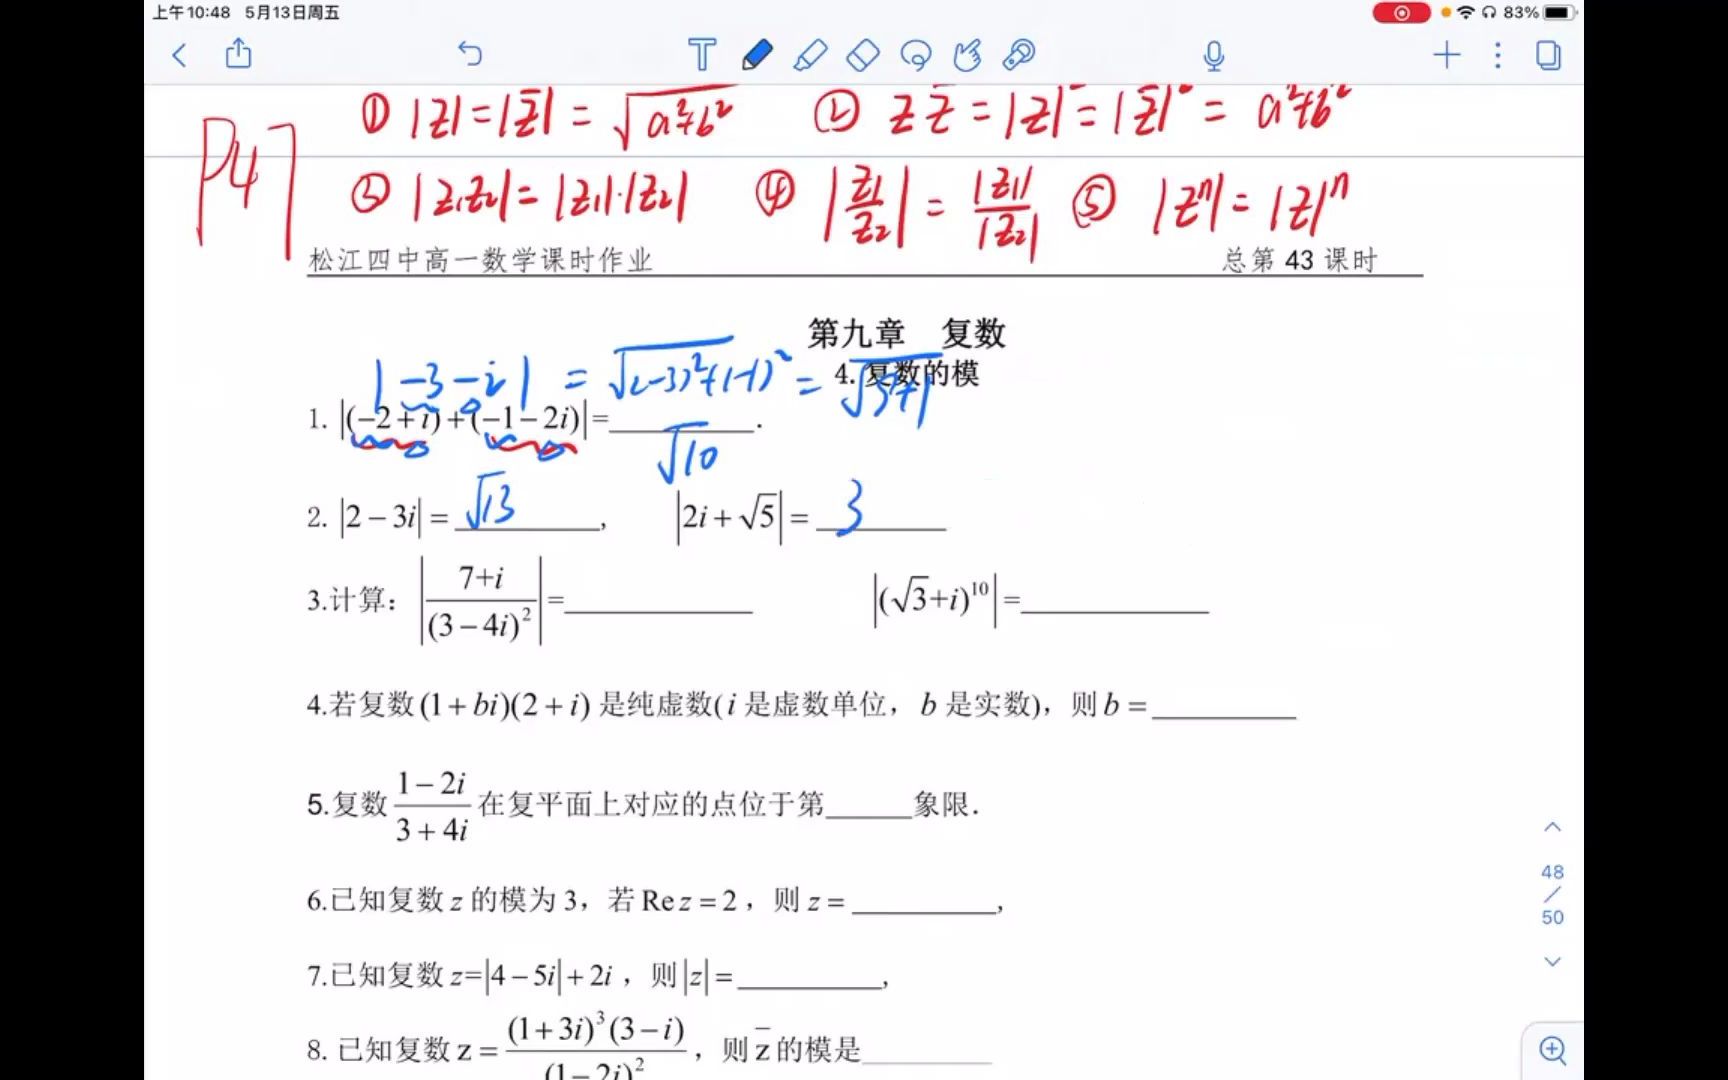 上午10:48 5月13日周五
83%
① |z| = |z̄| = √(a²+b²) ② z z̄ = |z|² = |z̄|² = a²+b²
P47
③ |z₁z₂| = |z₁|·|z₂| ④ |z₁/z₂| = |z₁|/|z₂| ⑤ |zⁿ| = |z|ⁿ
松江四中高一数学课时作业 总第 43 课时
第九章 复数
|-3-i| = √((-3)²+(-1)²) = √(9+1)
4. 复数的模
1. |(−2+i)+(−1−2i)|=________.
√10
2. |2−3i| = √13, |2i+√5| = 3
3.计算: |(7+i)/(3−4i)²| =________ |(√3+i)¹⁰| =________
4.若复数(1+bi)(2+i)是纯虚数(i是虚数单位，b是实数)，则b=________
5.复数 (1−2i)/(3+4i) 在复平面上对应的点位于第______象限.
6.已知复数z的模为3，若Re z=2，则z=________,
7.已知复数z=|4−5i|+2i，则|z|=________,
8. 已知复数z= (1+3i)³(3−i)/(1−2i)²，则z̄的模是________
48
/
50